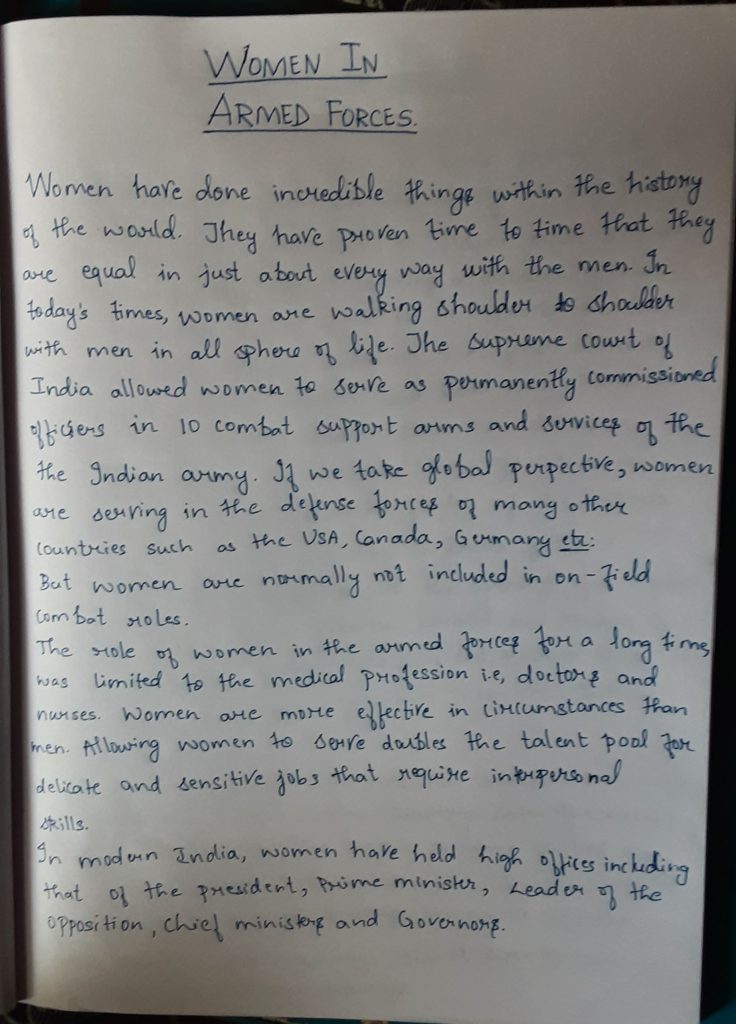 WOMEN IN
ARMED FORCES.
Women have done incredible things within the history
of the world. They have proven time to time that they
are equal in just about every way with the men. In
today's times, women are walking shoulder to shoulder
with men in all sphere of life. The supreme court of
India allowed women to serve as permanently commissioned
officers in 10 combat support arms and services of the
the Indian army. If we take global perpective, women
are serving in the defense forces of many other
countries such as the USA, Canada, Germany etc:
But women are normally not included in on-field
combat roles.
The role of women in the armed forces for a long time,
was limited to the medical profession i.e, doctors and
nurses. Women are more effective in circumstances than
men. Allowing women to serve doubles the talent pool for
delicate and sensitive jobs that require interpersonal
skills.
In modern India, women have held high offices including
that of the president, Prime minister, Leader of the
opposition, chief ministers and Governors.